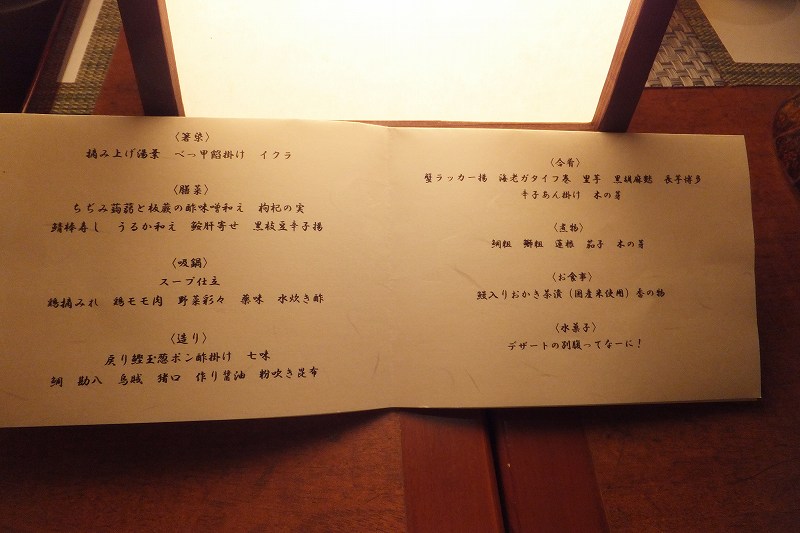 〈箸染〉
摘み上げ湯葉 べっ甲餡掛け イクラ
〈膳菜〉
ちぢみ蒟蒻と板蕨の酢味噌和え 枸杞の実
鯖棒寿し うるか和え 鮟肝寄せ 黒枝豆辛子揚
〈吸鍋〉
スープ仕立
鶏摘みれ 鶏モモ肉 野菜彩々 薬味 水炊き酢
〈造り〉
戻り鰹玉葱ポン酢掛け 七味
鯛 勘八 烏賊 猪口 作り醤油 粉吹き昆布
〈合肴〉
蟹ラッカー揚 海老カダイフ巻 里芋 黒胡麻麩 長芋博多
辛子あん掛け 木の芽
〈煮物〉
鯛粗 鰤粗 蓮根 茄子 木の芽
〈お食事〉
鰻入りおかき茶漬（国産米使用）香の物
〈水菓子〉
デザートの別腹ってなーに！